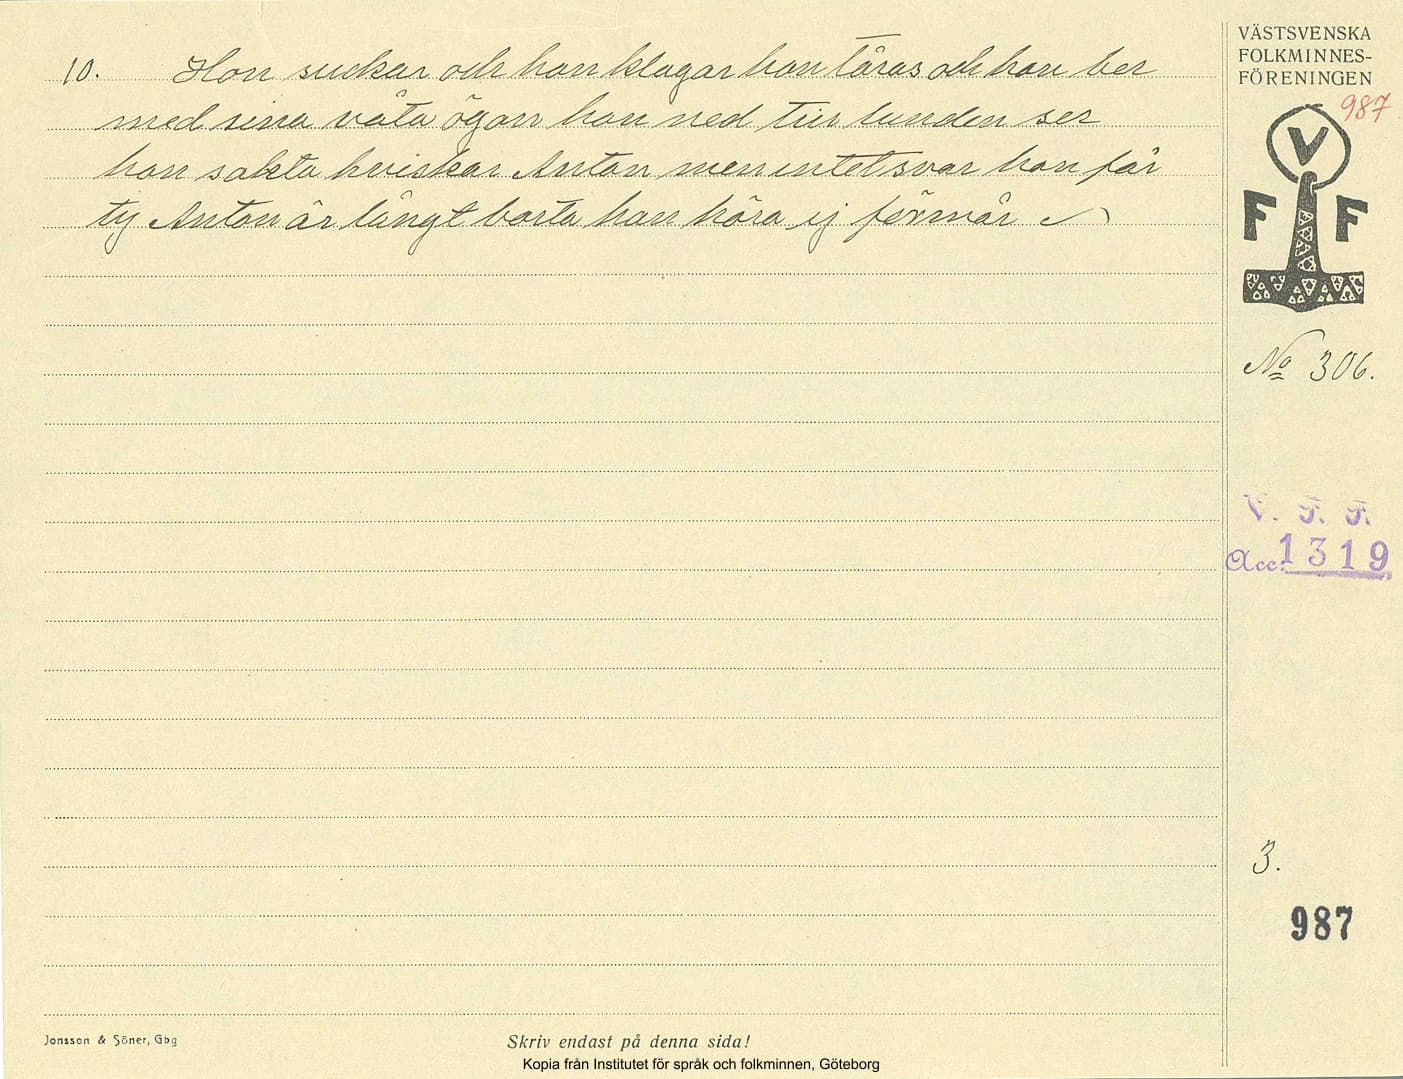 10. Hon suckar och hon klagar hon tåras och hon ber
med sina våta ögon hon ned till lunden ser
hon sakta hviskar Anton men intet svar hon får
ty Anton är långt borta han höra ej förmår
VÄSTSVENSKA
FOLKMINNES-
FÖRENINGEN
987
V
F F
No 306.
V. F. F.
Acc. 1319
3.
987
Jonsson & Söner, Gbg
Skriv endast på denna sida!
Kopia från Institutet för språk och folkminnen, Göteborg